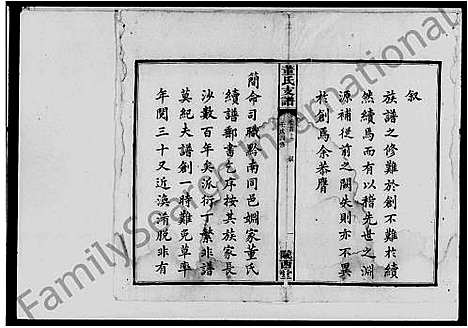 敘
族譜之修難於創不難於續
然續焉而有以稽先世之淵
源補從前之闕失則亦不異
於創焉余恭膺
董氏支譜
敘
隴西堂
簡命司職黔南同邑姻家董氏
續譜郵書乞序按其族家長
沙數百年矣派衍丁繁非譜
莫紀夫譜創一時難免草率
年閱三十又近淡淆脫非有
FamilySearch International